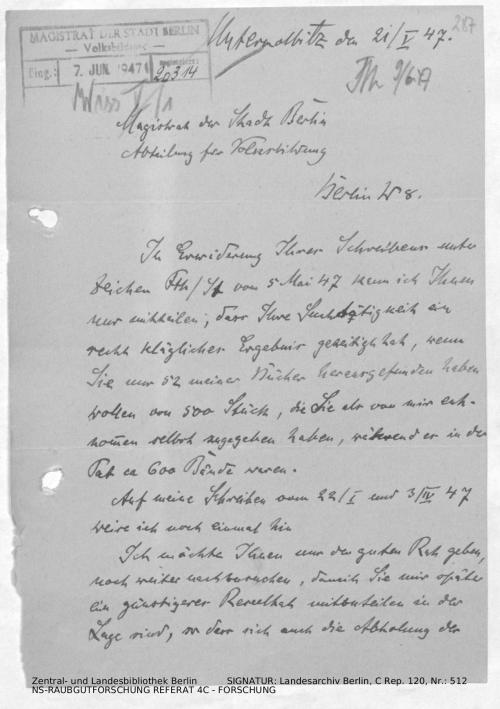 287
MAGISTRAT DER STADT BERLIN
— Volksbildung —
Eing.: 7. JUN. 1947 20314
den 21/V 47.
Magistrat der Stadt Berlin
Abteilung für Volksbildung
Berlin W 8.
In Erwiderung Ihres Schreibens unter
Zeichen Fth/St vom 5 Mai 47 kann ich Ihnen
nur mitteilen, dass Ihre Suchtätigkeit ein
recht klägliches Ergebnis gezeitigt hat, wenn
Sie nur 52 meiner Bücher herausgefunden haben
wollen von 500 Stück, die Sie als von mir ent-
nomen selbst zugegeben haben, während es in der
Tat ca 600 Bände waren.
Auf meine Schreiben vom 22/I und 3/IV 47
weise ich noch einmal hin
Ich möchte Ihnen nur den guten Rat geben,
noch weiter nachzusuchen, damit Sie mir später
ein günstigeres Resultat mitzuteilen in der
Lage sind, so dass sich auch die Abholung der
Zentral- und Landesbibliothek Berlin SIGNATUR: Landesarchiv Berlin, C Rep. 120, Nr.: 512
NS-RAUBGUTFORSCHUNG REFERAT 4C - FORSCHUNG